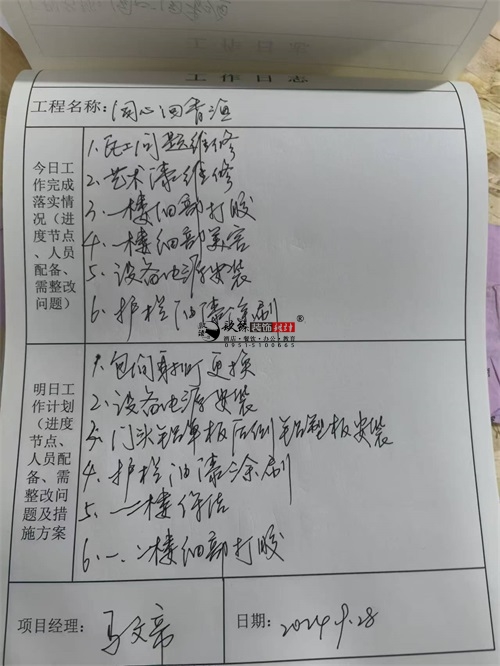 工作日志
工程名称：同心回香渔
今日工作完成落实情况（进度节点、人员配备、需整改问题）
1、瓦工问题维修
2、艺术漆维修
3、一楼细部打胶
4、一楼细部美容
5、设备电源安装
6、护栏油漆涂刷
装饰设计®
酒店·餐饮·办公·教育
0951-5100665
明日工作计划（进度节点、人员配备、需整改问题及措施方案
1、包间射灯更换
2、设备电源安装
3、门头铝单板后侧铝塑板安装
4、护栏油漆涂刷
5、一二楼保洁
6、一、二楼细部打胶
项目经理：马文帝
日期：2024.9.28